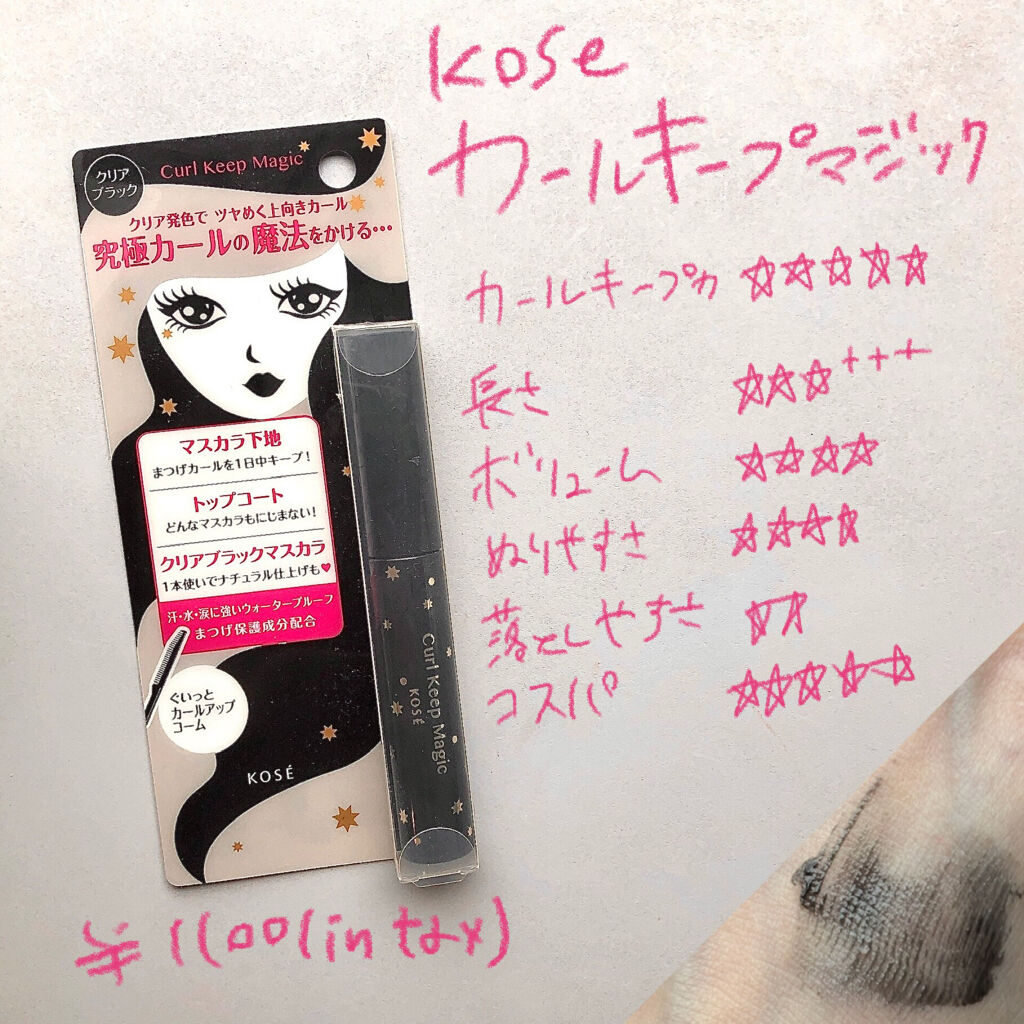 kose
カールキープマジック
カールキープ力 ☆☆☆☆☆
長さ ☆☆☆+++
ボリューム ☆☆☆☆
ぬりやすさ ☆☆☆☆
落としやすさ ☆☆
コスパ ☆☆☆☆☆
¥1100(in tax)
クリア
ブラック
Curl Keep Magic
クリア発色で ツヤめく上向きカール
究極カールの魔法をかける…
マスカラ下地
まつげカールを1日中キープ!
トップコート
どんなマスカラもにじまない!
クリアブラックマスカラ
1本使いでナチュラル仕上げも♥
汗・水・涙に強いウォータープルーフ
まつげ保護成分配合
ぐいっと
カールアップ
コーム
KOSÉ
Curl Keep Magic
KOSÉ